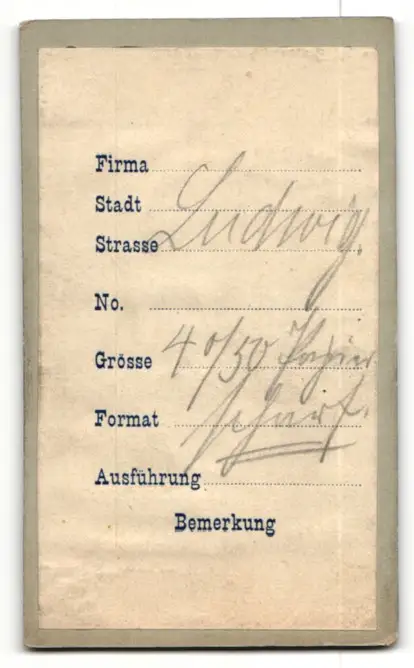 Firma
Stadt
Strasse Ludwig.
No.
Grösse 40/50 Papier
Format scharf.
Ausführung
Bemerkung